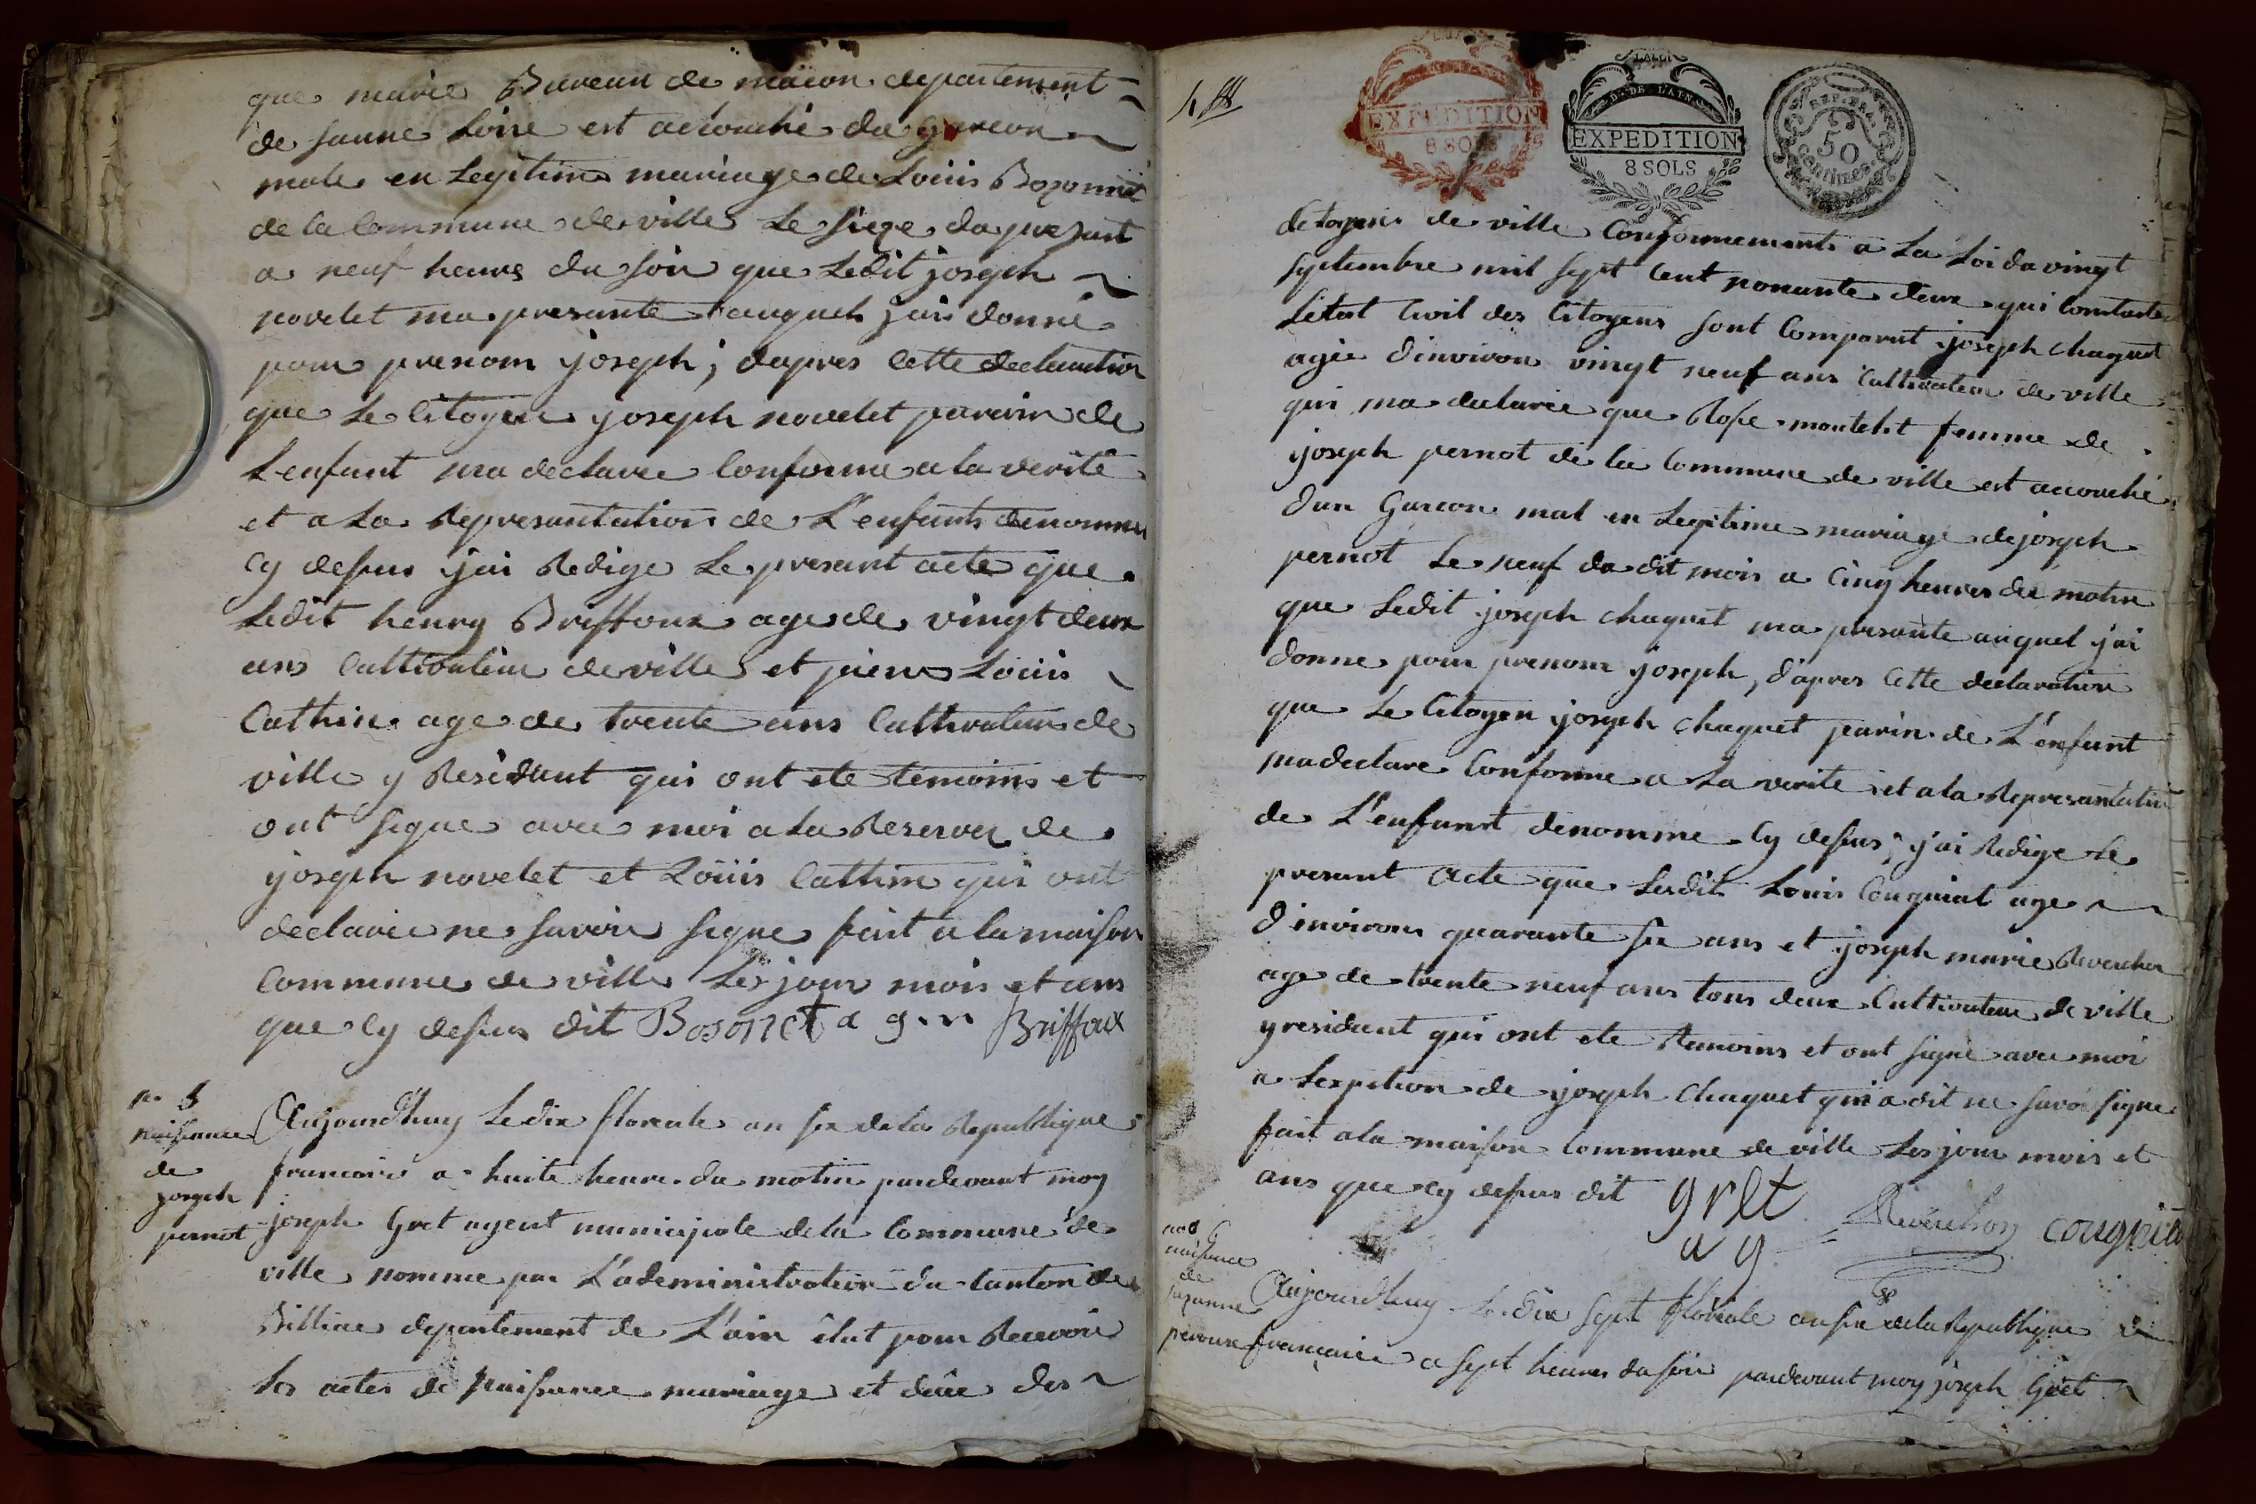 que marie Bureau de macon departement
de saune Loire est acchouché du garcon
male en Legitime mariage de Loüis Bozonnet
de la Commune de ville Le sieze du presant
a neuf heure du soir que Ledit joseph
novelet ma presanté auquel jais donné
pour prenom joseph; dapres cette declaration
que Le Citoyen joseph novelet parain de
L'enfant ma declaree Conforme a la verité
et a La Represantation de L'enfants denommé
Cy desus jai Redige Le presant acte que
Ledit henry Briffoux age de vingt deux
ans Cultivateur de ville et piere Loüis
Cathin age de trente ans Cultivateur de
ville y Residant qui ont ete temoins et
ont signe avec moi a La Reserver de
joseph novelet et Loüis Cathin qui ont
declaree ne savoir signe fait a la maison
Commune de ville Les jour mois et ans
que Cy desus dit Bosonet a g Briffoux
no 5
naissance
de
joseph
pernot
Aujourdhuy Le dix floreale an six de la Republique
francaise a huite heure du matin pardevant moy
joseph Gret agent municipale de la Commune de
ville nomme par L'administration du Canton de
Billiac departement de L'ain élut pour Recevoir
Les actes de Naissance mariage et décé des
EXPEDITION
8 SOLS
LA LOI
D. DE L'AIN
EXPEDITION
8 SOLS
REP. FRA.
50
centimes
Citoyens de ville Conformement a La Loi du vingt
septembre mil sept Cent nonante deux qui Constate
L'etat Civil des Citoyens sont Comparut joseph chaquet
agée d'inviron vingt neuf ans Cultivateur de ville
qui ma declaree que Rose montelit femme de
joseph pernot de la Commune de ville est accouché
d'un Garcon mal en Legitime mariage de joseph
pernot Le neuf du dit mois a Cinq heures du matin
que Ledit joseph chaquet ma presante auquel j'ai
donne pour prenom joseph, d'apres Cette declaration
que Le Citoyen joseph chaquet parin de L'enfant
ma declare Conforme a La verite et a la Represantation
de L'enfant denomme Cy desus; j'ai Redige Le
presant acte que Lesdit Louis Couguiat age
d'inviron quarante six ans et joseph marie Reverchon
age de trente neuf ans tous deux Cultivateur de ville
y residant qui ont ete temoins et ont signé avec moi
a Lexpetion de joseph Chaquet qui a dit ne savoi signe
fait a la maison Commune de ville Les jour mois et
ans que cy desus dit gret Reverchon
a g
no 6
naissance
de
suzanne
peroux
Aujourdhuy Le dix sept floréale an six de la Republique
francaise a sept heures du soir pardevant moy joseph Grét